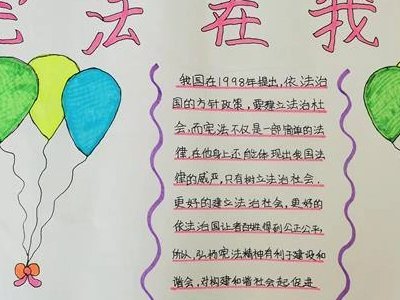 宪法在我
我国在1998年提出，依法治
国的方针政策，要建立法治社
会，而宪法不仅是一部简单的法
律，在他身上还能体现出我国法
律的威严，只有树立法治社会，
更好的建立法治社会，更好的
依法治国让老百姓得到公正公平，
所以，弘扬宪法精神有利于建设和
谐会，对构建和谐社会起促进